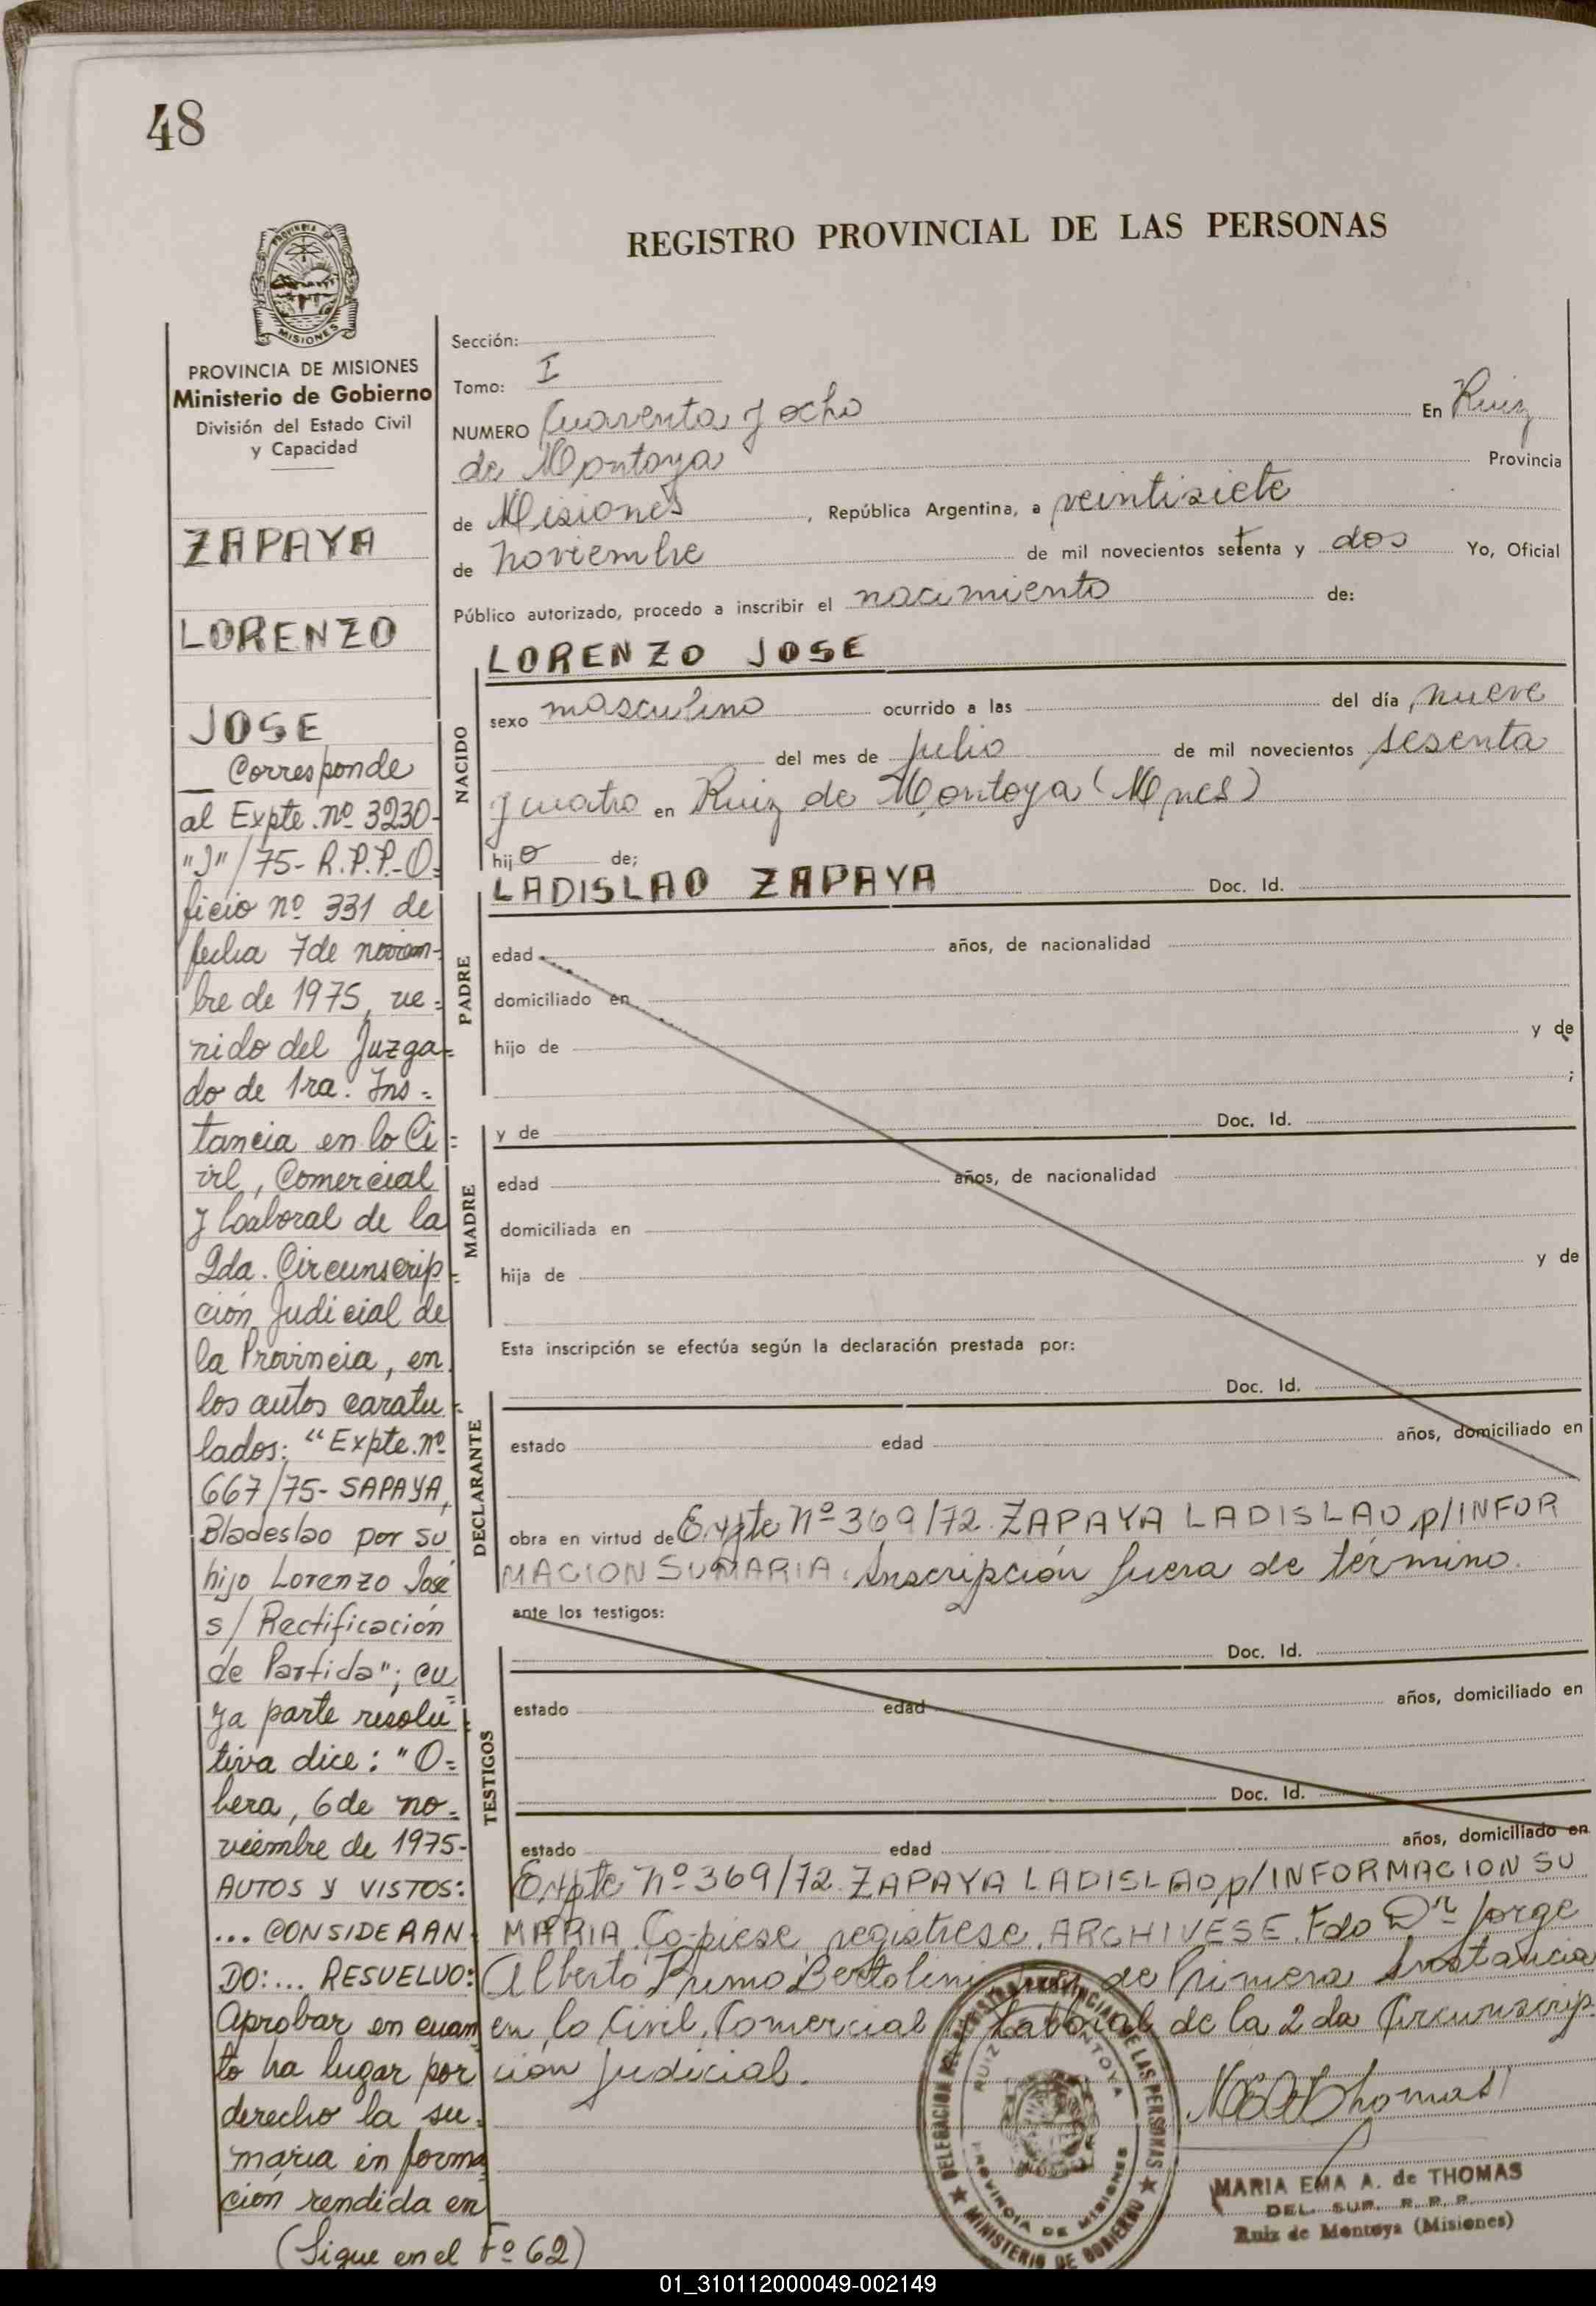 48
REGISTRO PROVINCIAL DE LAS PERSONAS
MISIONES
PROVINCIA DE MISIONES
Ministerio de Gobierno
División del Estado Civil
y Capacidad
ZAPAYA
LORENZO
JOSE
Corresponde
al Expte. nº 3230-
"J"/75- R.P.P.-O=
ficio nº 331 de
fecha 7 de noviem-
bre de 1975, ve=
nido del Juzga=
do de 1ra. Ins=
tancia en lo Ci=
vil, Comercial
y Laboral de la
2da. Circunscrip=
ción Judicial de
la Provincia, en
los autos caratu=
lados: "Expte. nº
667/75- SAPAYA,
Bladeslao por su
hijo Lorenzo José
s/ Rectificación
de Partida"; cu=
ya parte resolu=
tiva dice: "O=
bera, 6 de no=
viembre de 1975-
AUTOS Y VISTOS:
... CONSIDERAN
DO:... RESUELVO:
Aprobar en cuan=
to ha lugar por
derecho la su=
maria informa
ción rendida en
(Sigue en el Fº 62)
Sección:
Tomo: I
NUMERO Cuarenta y ocho En Ruiz
de Montoya Provincia
de Misiones, República Argentina, a veintisiete
de noviembre de mil novecientos setenta y dos Yo, Oficial
Público autorizado, procedo a inscribir el nacimiento de:
NACIDO
LORENZO JOSE
sexo masculino ocurrido a las del día nueve
del mes de julio de mil novecientos sesenta
y cuatro en Ruiz de Montoya (Mnes)
hijo de;
PADRE
LADISLAO ZAPAYA Doc. Id.
edad años, de nacionalidad
domiciliado en
hijo de y de
;
MADRE
y de Doc. Id.
edad años, de nacionalidad
domiciliada en
hija de y de
Esta inscripción se efectúa según la declaración prestada por:
DECLARANTE
Doc. Id.
estado edad años, domiciliado en
obra en virtud de Expte Nº 369/72 ZAPAYA LADISLAO p/INFOR
MACION SUMARIA. Inscripción fuera de término.
ante los testigos:
TESTIGOS
Doc. Id.
estado edad años, domiciliado en
Doc. Id.
estado edad años, domiciliado en
Expte Nº 369/72 ZAPAYA LADISLAO p/INFORMACION SU
MARIA. Copiese, registrese, ARCHIVESE. Fdo Dr. Jorge
Alberto Primo Bertolini de Primera Instancia
en lo Civil, Comercial y Laboral de la 2da Circunscrip-
ción judicial.
DELEGACION DEL REGISTRO PROVINCIAL DE LAS PERSONAS
RUIZ DE MONTOYA
PROVINCIA DE MISIONES
★ MINISTERIO DE GOBIERNO ★
MARIA EMA A. de THOMAS
DEL. SUP. R. P. P.
Ruiz de Montoya (Misiones)
01_310112000049-002149